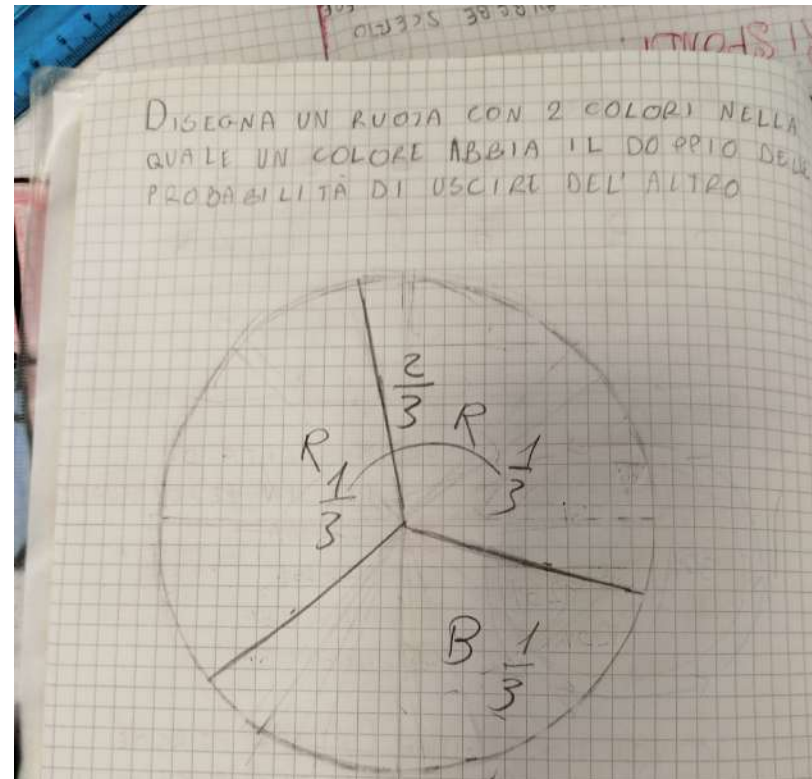 DISEGNA UN RUOTA CON 2 COLORI NELLA
QUALE UN COLORE ABBIA IL DOPPIO DELLE
PROBABILITÀ DI USCIRE DEL' ALTRO
2/3
R R
1/3 1/3
B 1/3